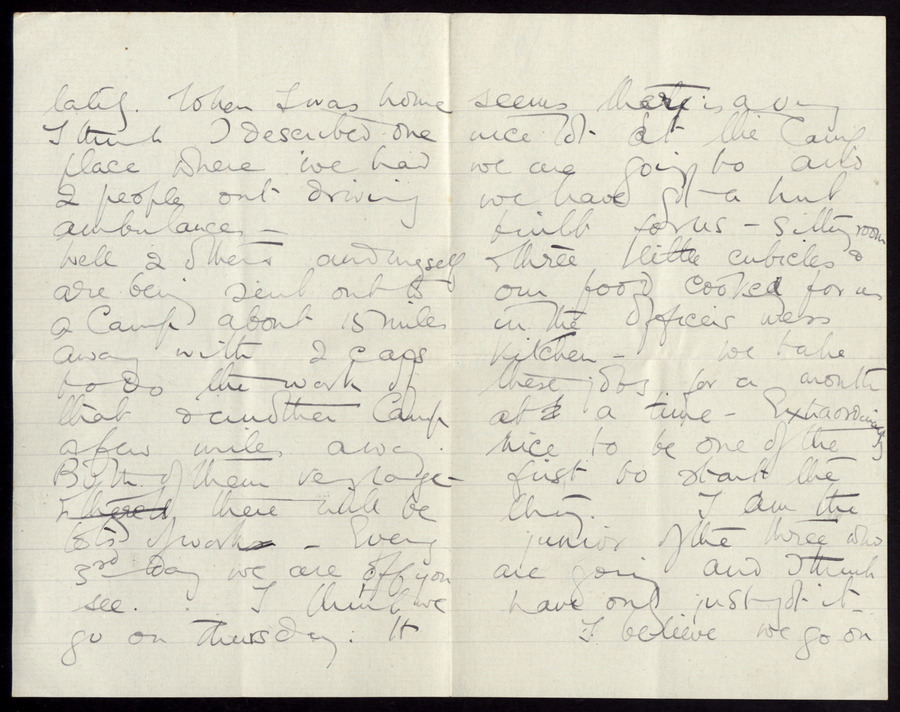 lately. When I was home
I think I described one
place where we had
2 people out driving
ambulances –
Well 2 others and myself
are being sent out to
a Camp about 15 miles
away with 2 cars
to do the work of
that & another Camp
a few miles away.
Both of them very large –
& there will be
lots of work – Every
3rd Day we are off you
see. I think we
go on Thursday. It
seems there is a very
nice lot at the Camp
we are going to and
we have got a hut
built for us – sitting room
& three little cubicles &
our food cooked for us
in the Officers mess
kitchen – we take
these jobs for a month
at a time – Extraordinarily
nice to be one of the
first to start the
thing. I am the
junior of the three who
are going and I think
have only just got it –
I believe we go on